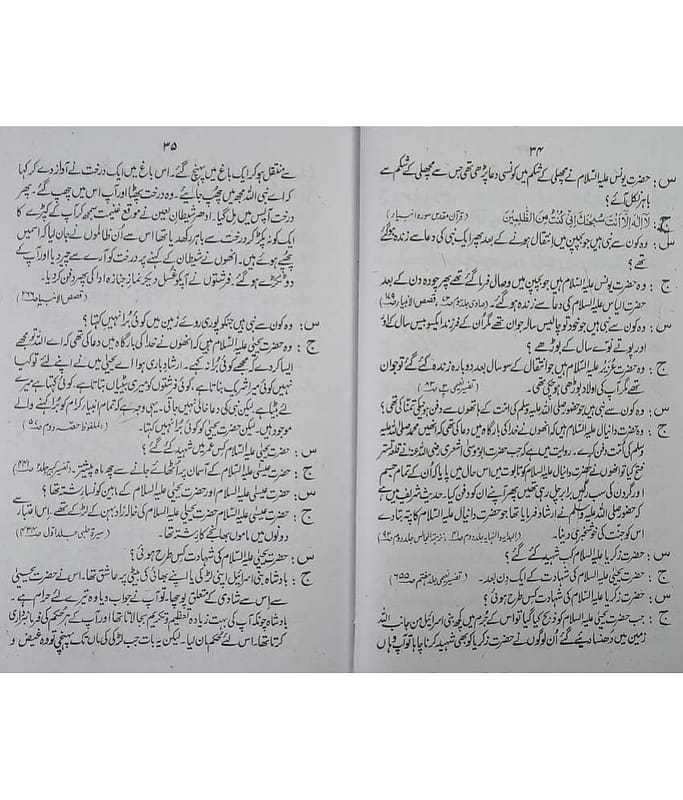 ۳۴
س : حضرت یونس علیہ السلام نے مچھلی کے شکم میں کونسی دعا پڑھی تھی جس سے مچھلی کے شکم سے
باہر نکل آئے؟
ج : لا الہ الا انت سبحنک انی کنت من الظلمین (قرآن مقدس سورہ انبیاء)
س : وہ کون سے نبی ہیں جو بچپن میں انتقال ہونے کے بعد پھر ایک نبی کی دعا سے زندہ ہوگئے
تھے؟
ج : وہ حضرت یونس علیہ السلام ہیں جو بچپن میں وصال فرما گئے تھے پھر چودہ دن کے بعد
حضرت الیاس علیہ السلام کی دعا سے زندہ ہوگئے۔ (صاوی جلد سوم قصص الانبیاء
س : وہ کون سے نبی ہیں جو خود تو چالیس سالہ جوان تھے مگر ان کے فرزند ایکسو بیس سال کے
اور پوتے نوے سال کے بوڑھے؟
ج : وہ حضرت عزیر علیہ السلام ہیں جو انتقال کے سو سال بعد دوبارہ زندہ کئے گئے تو جوان
تھے مگر آپ کی اولاد بوڑھی ہوچکی تھی۔ (تفسیر نعیمی
س : وہ کون سے نبی ہیں جو حضور صلی اللہ علیہ وسلم کی امت کے ہاتھوں سے دفن ہونیکی تمنا کی تھی؟
ج : وہ حضرت دانیال علیہ السلام ہیں کہ انھوں نے خدا کی بارگاہ میں دعا کی تھی کہ انھیں محمد صلی اللہ علیہ
وسلم کی امت دفن کرے۔ روایت میں ہے کہ جب حضرت ابو موسیٰ اشعری رضی اللہ عنہ نے قلعہ تستر
فتح کیا تو انھوں نے حضرت دانیال علیہ السلام کو تابوت میں اس حال میں پایا کہ ان کے تمام جسم
اور گردن کی سب رگیں برابر چل رہی تھیں پھر آپ نے ان کو دفن کیا۔ حدیث شریف میں ہے
کہ حضور صلی اللہ علیہ وسلم نے ارشاد فرمایا تھا جو حضرت دانیال علیہ السلام کا پتہ بتا دے
اس کو جنت کی خوشخبری دینا۔ (البدایہ والنہایہ جلد دوم نزہۃ المجالس جلد دوم
س : حضرت زکریا علیہ السلام کب شہید کئے گئے؟
ج : حضرت یحییٰ علیہ السلام کی شہادت کے ایک دن بعد۔ (تفسیر نعیمی جلد ہفتم ص۶۵۵)
س : حضرت زکریا علیہ السلام کی شہادت کس طرح ہوئی؟
ج : جب حضرت یحییٰ علیہ السلام کو ذبح کیا گیا تو اس کے جرم میں کچھ بنی اسرائیل من جانب اللہ
زمین میں دھنسا دیئے گئے ان لوگوں نے حضرت زکریا کو بھی شہید کرنا چاہا تو آپ وہاں
۳۵
سے منتقل ہوکر ایک باغ میں پہنچ گئے۔ اس باغ میں ایک درخت نے آواز دے کر کہا
کہ اے نبی اللہ مجھ میں چھپ جائیے۔ وہ درخت پھٹا اور آپ اس میں چھپ گئے۔ پھر
درخت آپس میں مل گیا۔ ادھر شیطان لعین نے موقع غنیمت سمجھ کر آپ کے کپڑے کا
ایک کونہ پکڑ کر درخت سے باہر رکھدیا تھا اس سے ان ظالموں نے جان لیا کہ اسمیں
چھپے ہوئے ہیں۔ انھوں نے شیطان کے کہنے پر درخت کو آرے سے چیر دیا اور آپ کے
دو ٹکڑے ہوگئے۔ فرشتوں نے آپکو غسل دیکر نماز جنازہ ادا کی پھر دفن کردیا۔
(قصص الانبیاء
س : وہ کون سے نبی ہیں جنکو پوری روئے زمین میں کوئی برا نہیں کہتا؟
ج : وہ حضرت یحییٰ علیہ السلام ہیں کہ انھوں نے خدا کی بارگاہ میں دعا کی تھی کہ اے اللہ تو مجھے
ایسا کردے کہ مجھے کوئی برا نہ کہے۔ ارشاد باری ہوا اے یحییٰ میں نے اپنے لئے تو کیا
نہیں کوئی میرا شریک بناتا ہے، کوئی فرشتوں کو میری بیٹیاں بتاتا ہے، کوئی کہتا ہے میرے
لئے بیٹا ہے لیکن نبی کی دعا خالی نہیں جاتی۔ یہی وجہ ہے کہ تمام انبیاء کرام کو برا کہنے والے
موجود ہیں۔ لیکن حضرت یحییٰ کو کوئی برا نہیں کہتا۔ (الملفوظ حصہ دوم
س : حضرت یحییٰ علیہ السلام کس عمر میں شہید کئے گئے؟
ج : حضرت عیسیٰ علیہ السلام کے آسمان پر اٹھائے جانے سے چھ ماہ پیشتر۔ (تفسیر کبیر جلد
س : حضرت عیسیٰ علیہ السلام اور حضرت یحییٰ علیہ السلام کے مابین کونسا رشتہ تھا؟
ج : حضرت عیسیٰ علیہ السلام حضرت یحییٰ علیہ السلام کی خالہ زاد بہن کے لڑکے تھے اس اعتبار سے
دونوں میں ماموں بھانجے کا رشتہ تھا۔ (سیرۃ حلبی جلد اول ص۴۳۴)
س : حضرت یحییٰ علیہ السلام کی شہادت کس طرح ہوئی؟
ج : بادشاہ بنی اسرائیل اپنی لڑکی یا اپنے بھائی کی بیٹی پر عاشق تھا۔ اس نے حضرت یحییٰ
سے اس سے شادی کے متعلق پوچھا، تو آپ نے جواب دیا وہ تیرے لئے حرام ہے۔
بادشاہ چونکہ آپ کی بہت زیادہ تعظیم و تکریم بجا لاتا تھا اور آپ کے ہر حکم کی فرمانبرداری
کرتا تھا۔ اس لئے حکم مان لیا۔ لیکن یہ بات جب لڑکی کی ماں تک پہنچی تو وہ غیض و